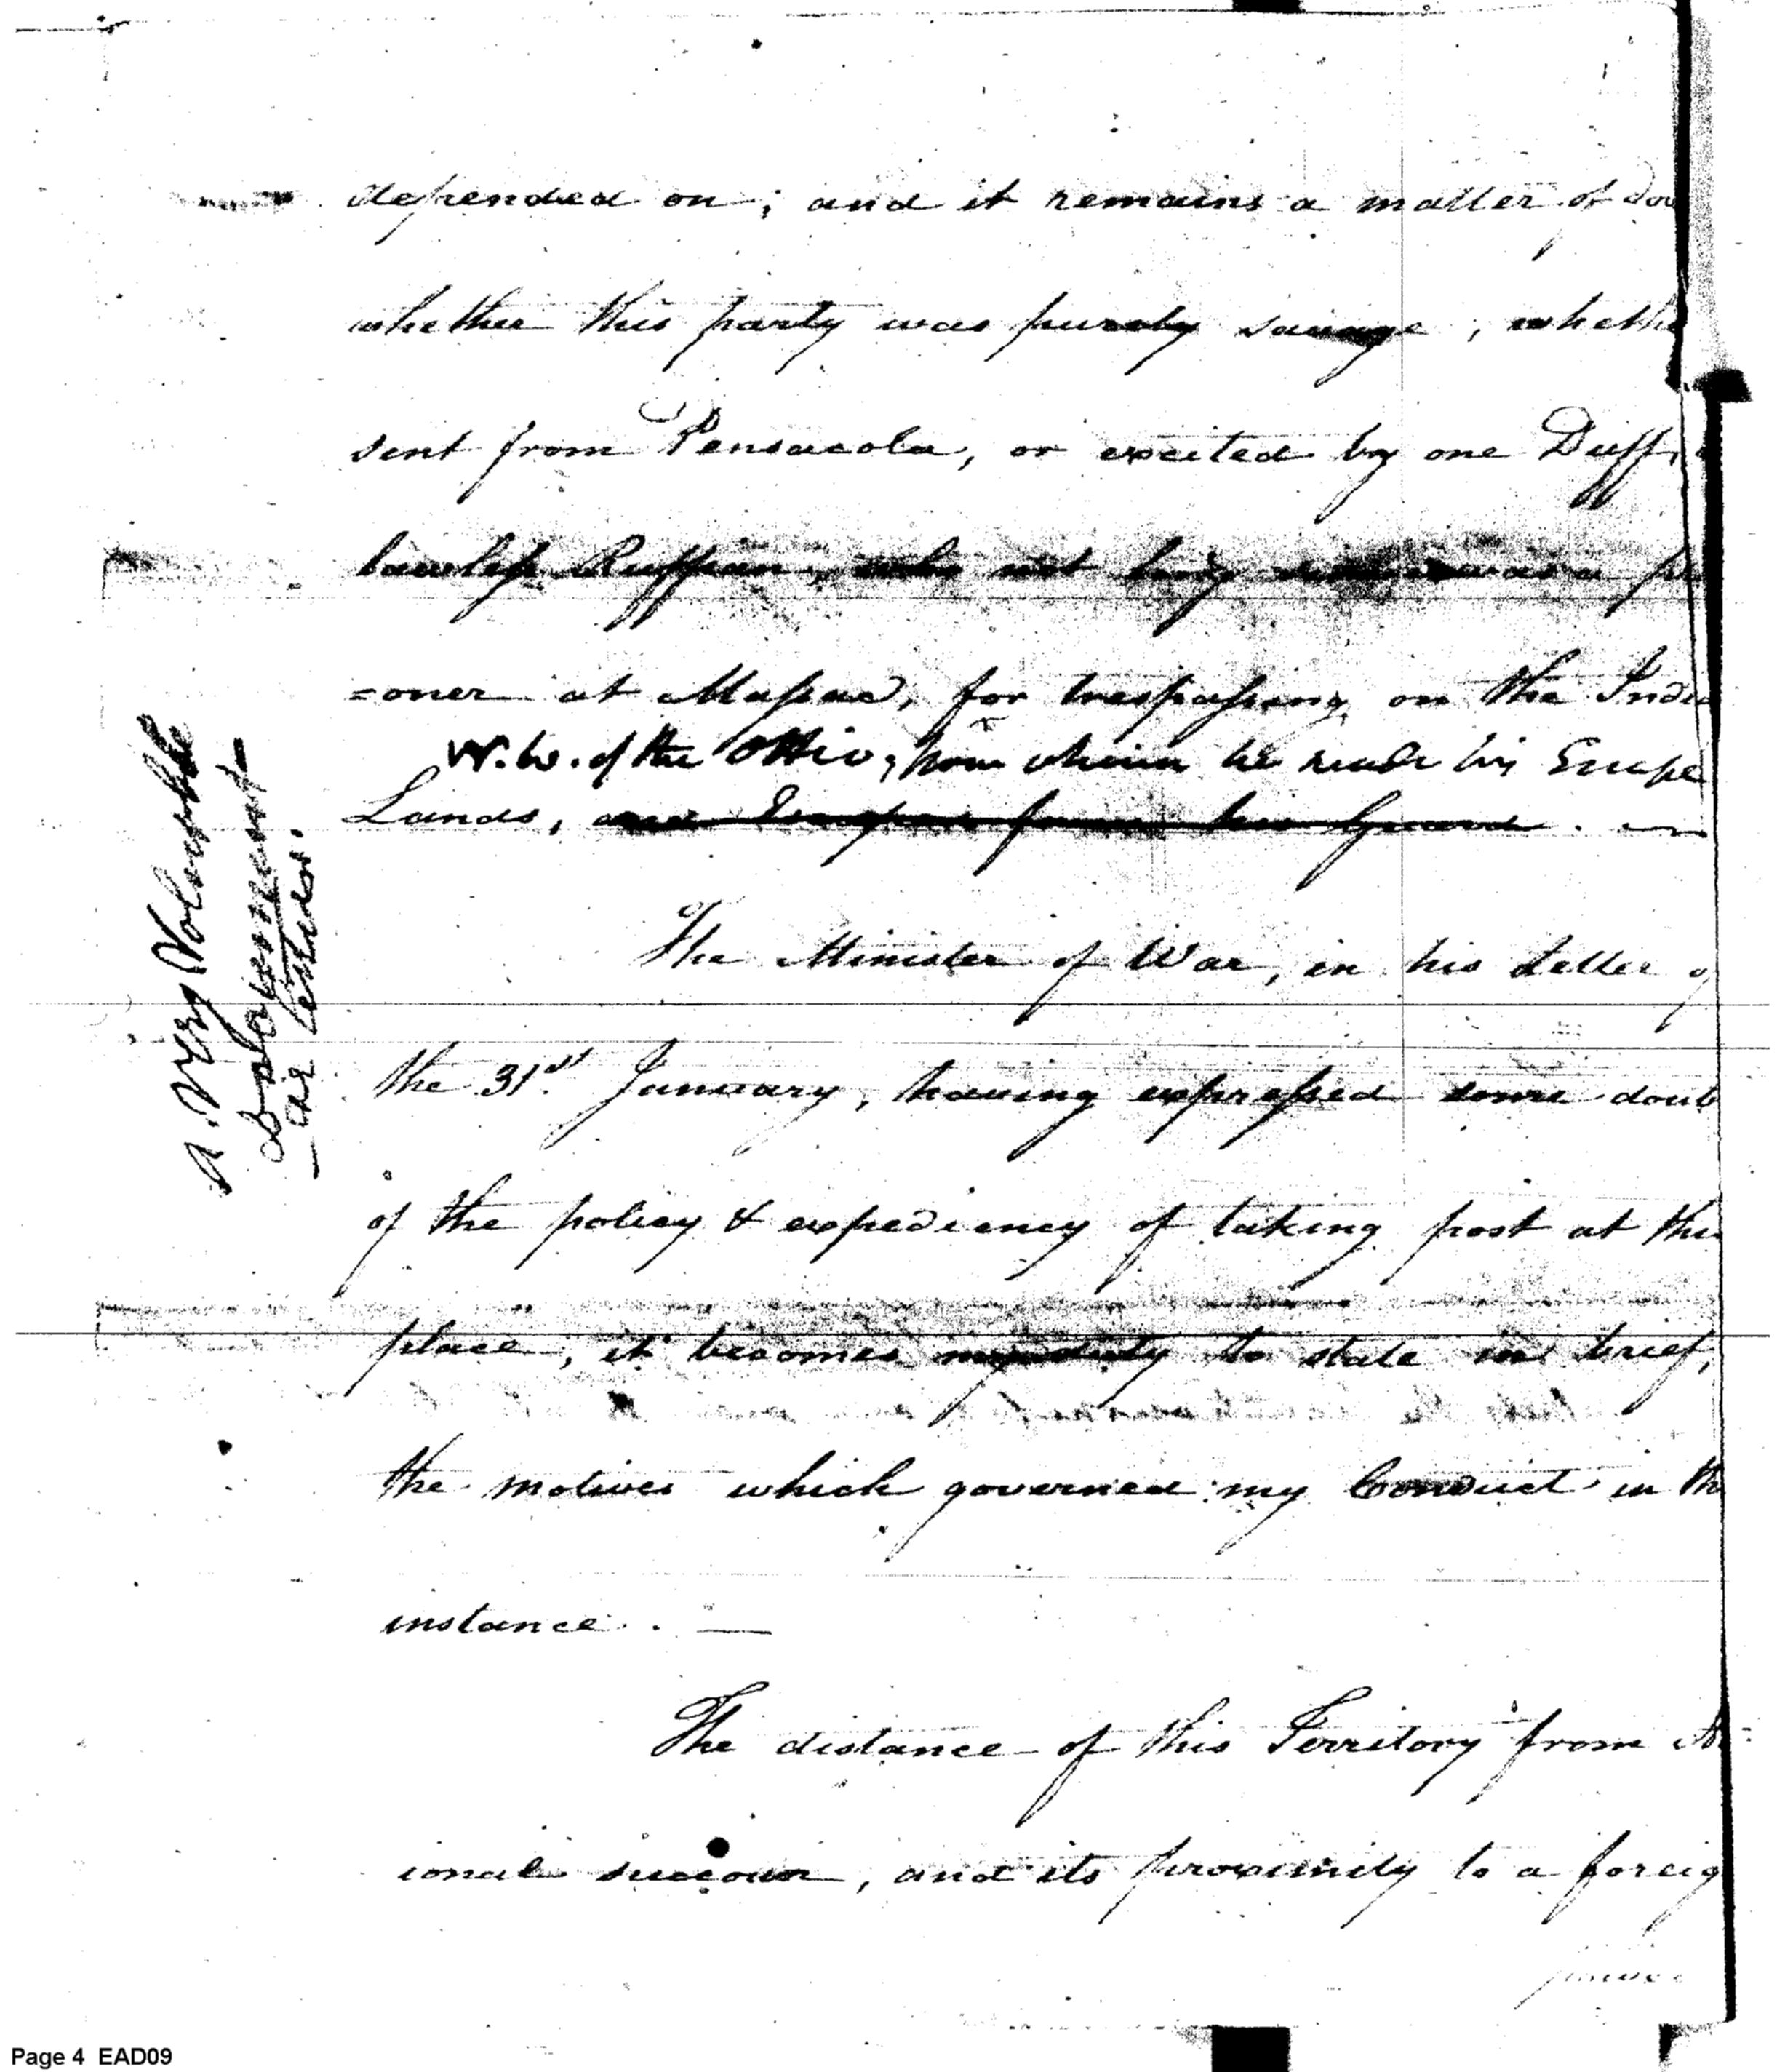 depended on; and it remains a matter of dou
whether this party was purely savage; whethe
sent from Pensacola, or excited by one Duff,
lawless Ruffian, who not long since was a pri
=oner at Massac, for trespassing on the India
N.W. of the Ohio, from whence he made his Escape
Lands, and Escaped from his Guard.
A very Voluable
Settlement
The Minister of War, in his Letter of
the 31st January, having expressed some doub
of the policy & expediency of taking post at this
place, it becomes my duty to state in brief,
the motives which governed my Conduct in th
instance. —
The distance of this Territory from Na
ional succour, and its proximity to a foreig
power
Page 4 EAD09